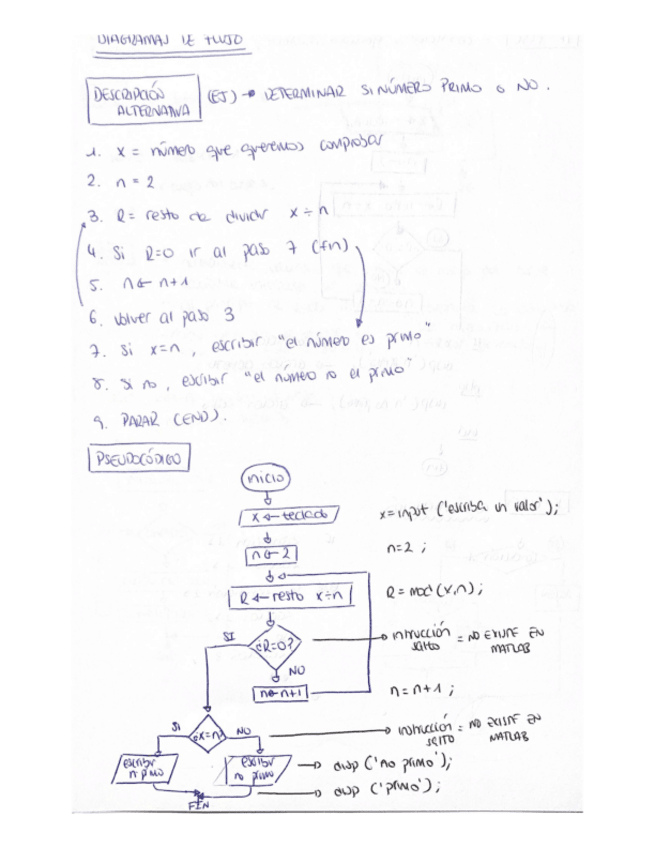 DIAGRAMAS DE FLUJO
DESCRIPCIÓN ALTERNATIVA (EJ) → DETERMINAR SI NÚMERO PRIMO O NO.
1. x = número que queremos comprobar
2. n = 2
3. R = resto de dividir x ÷ n
4. Si R=0 ir al paso 7 (fin)
5. n ← n+1
6. Volver al paso 3
7. Si x=n, escribir "el número es primo"
8. Si no, escribir "el número no el primo"
9. PARAR (END).
PSEUDOCÓDIGO
inicio
x ← teclado x = input ('escriba un valor');
n ← 2 n=2 ;
R ← resto x÷n R = mod (x,n) ;
SI ¿R=0? → instrucción salto = NO EXISTE EN MATLAB
NO
n ← n+1 n = n+1 ;
SI ¿x=n? NO → instrucción salto = NO EXISTE EN MATLAB
escribir n primo escribir no primo → disp ('no primo');
FIN → disp ('primo');